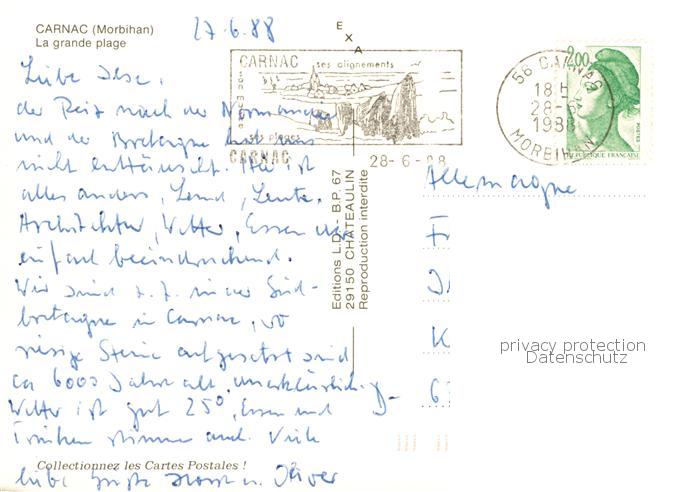 CARNAC (Morbihan)
La grande plage
27.6.88
EXA
CARNAC ses alignements
ses plages
CARNAC
28-6-88
56 CARNAC
18H
28-6
1988
MORBIHAN
2,00
POSTES
REPUBLIQUE FRANÇAISE
Liebe Ilse,
die Reise nach der Normandie
und der Bretagne hat uns
nicht enttäuscht. Hier ist
alles anders, Land, Leute,
Architektur, Wetter, Essen
einfach beeindruckend.
Wir sind z.Z. in der Süd-
bretagne in Carnac, wo
riesige Steine aufgesetzt sind
ca 6000 Jahre alt, unerklärlich
Wetter ist gut 25°, Essen und
Trinken stimmen auch. Viele
liebe Grüße Horst u. Oliver
Editions L.D. - B.P. 67
29150 CHATEAULIN
Reproduction interdite
Allemagne
Fr
K
6
privacy protection
Datenschutz
Collectionnez les Cartes Postales !